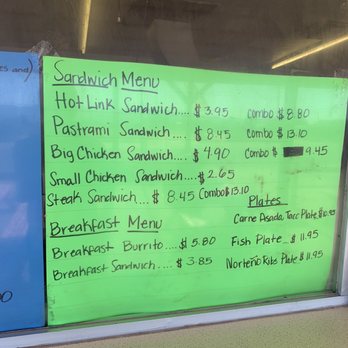 es and)
Sandwich Menu
Hot Link Sandwich.... $3.95 Combo $8.80
Pastrami Sandwich.... $8.45 Combo $13.10
Big Chicken Sandwich.... $4.90 Combo $ 9.45
Small Chicken Sandwich.... $2.65
Steak Sandwich.... $8.45 Combo $13.10
Breakfast Menu
Breakfast Burrito.... $5.80
Breakfast Sandwich.... $3.85
Plates
Carne Asada, Taco Plate, $10.95
Fish Plate... $11.95
Norteño Ribs Plate $11.95